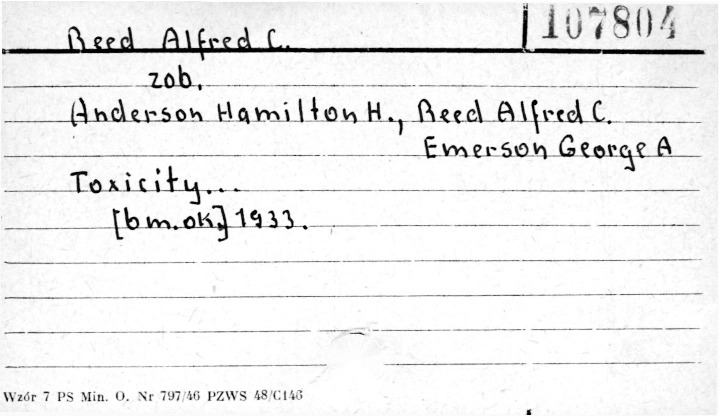 Reed Alfred C.
107804
zob.
Anderson Hamilton H., Reed Alfred C.
Emerson George A
Toxicity...
[bm.ok.] 1933.
Wzór 7 PS Min. O. Nr 797/46 PZWS 48/C146